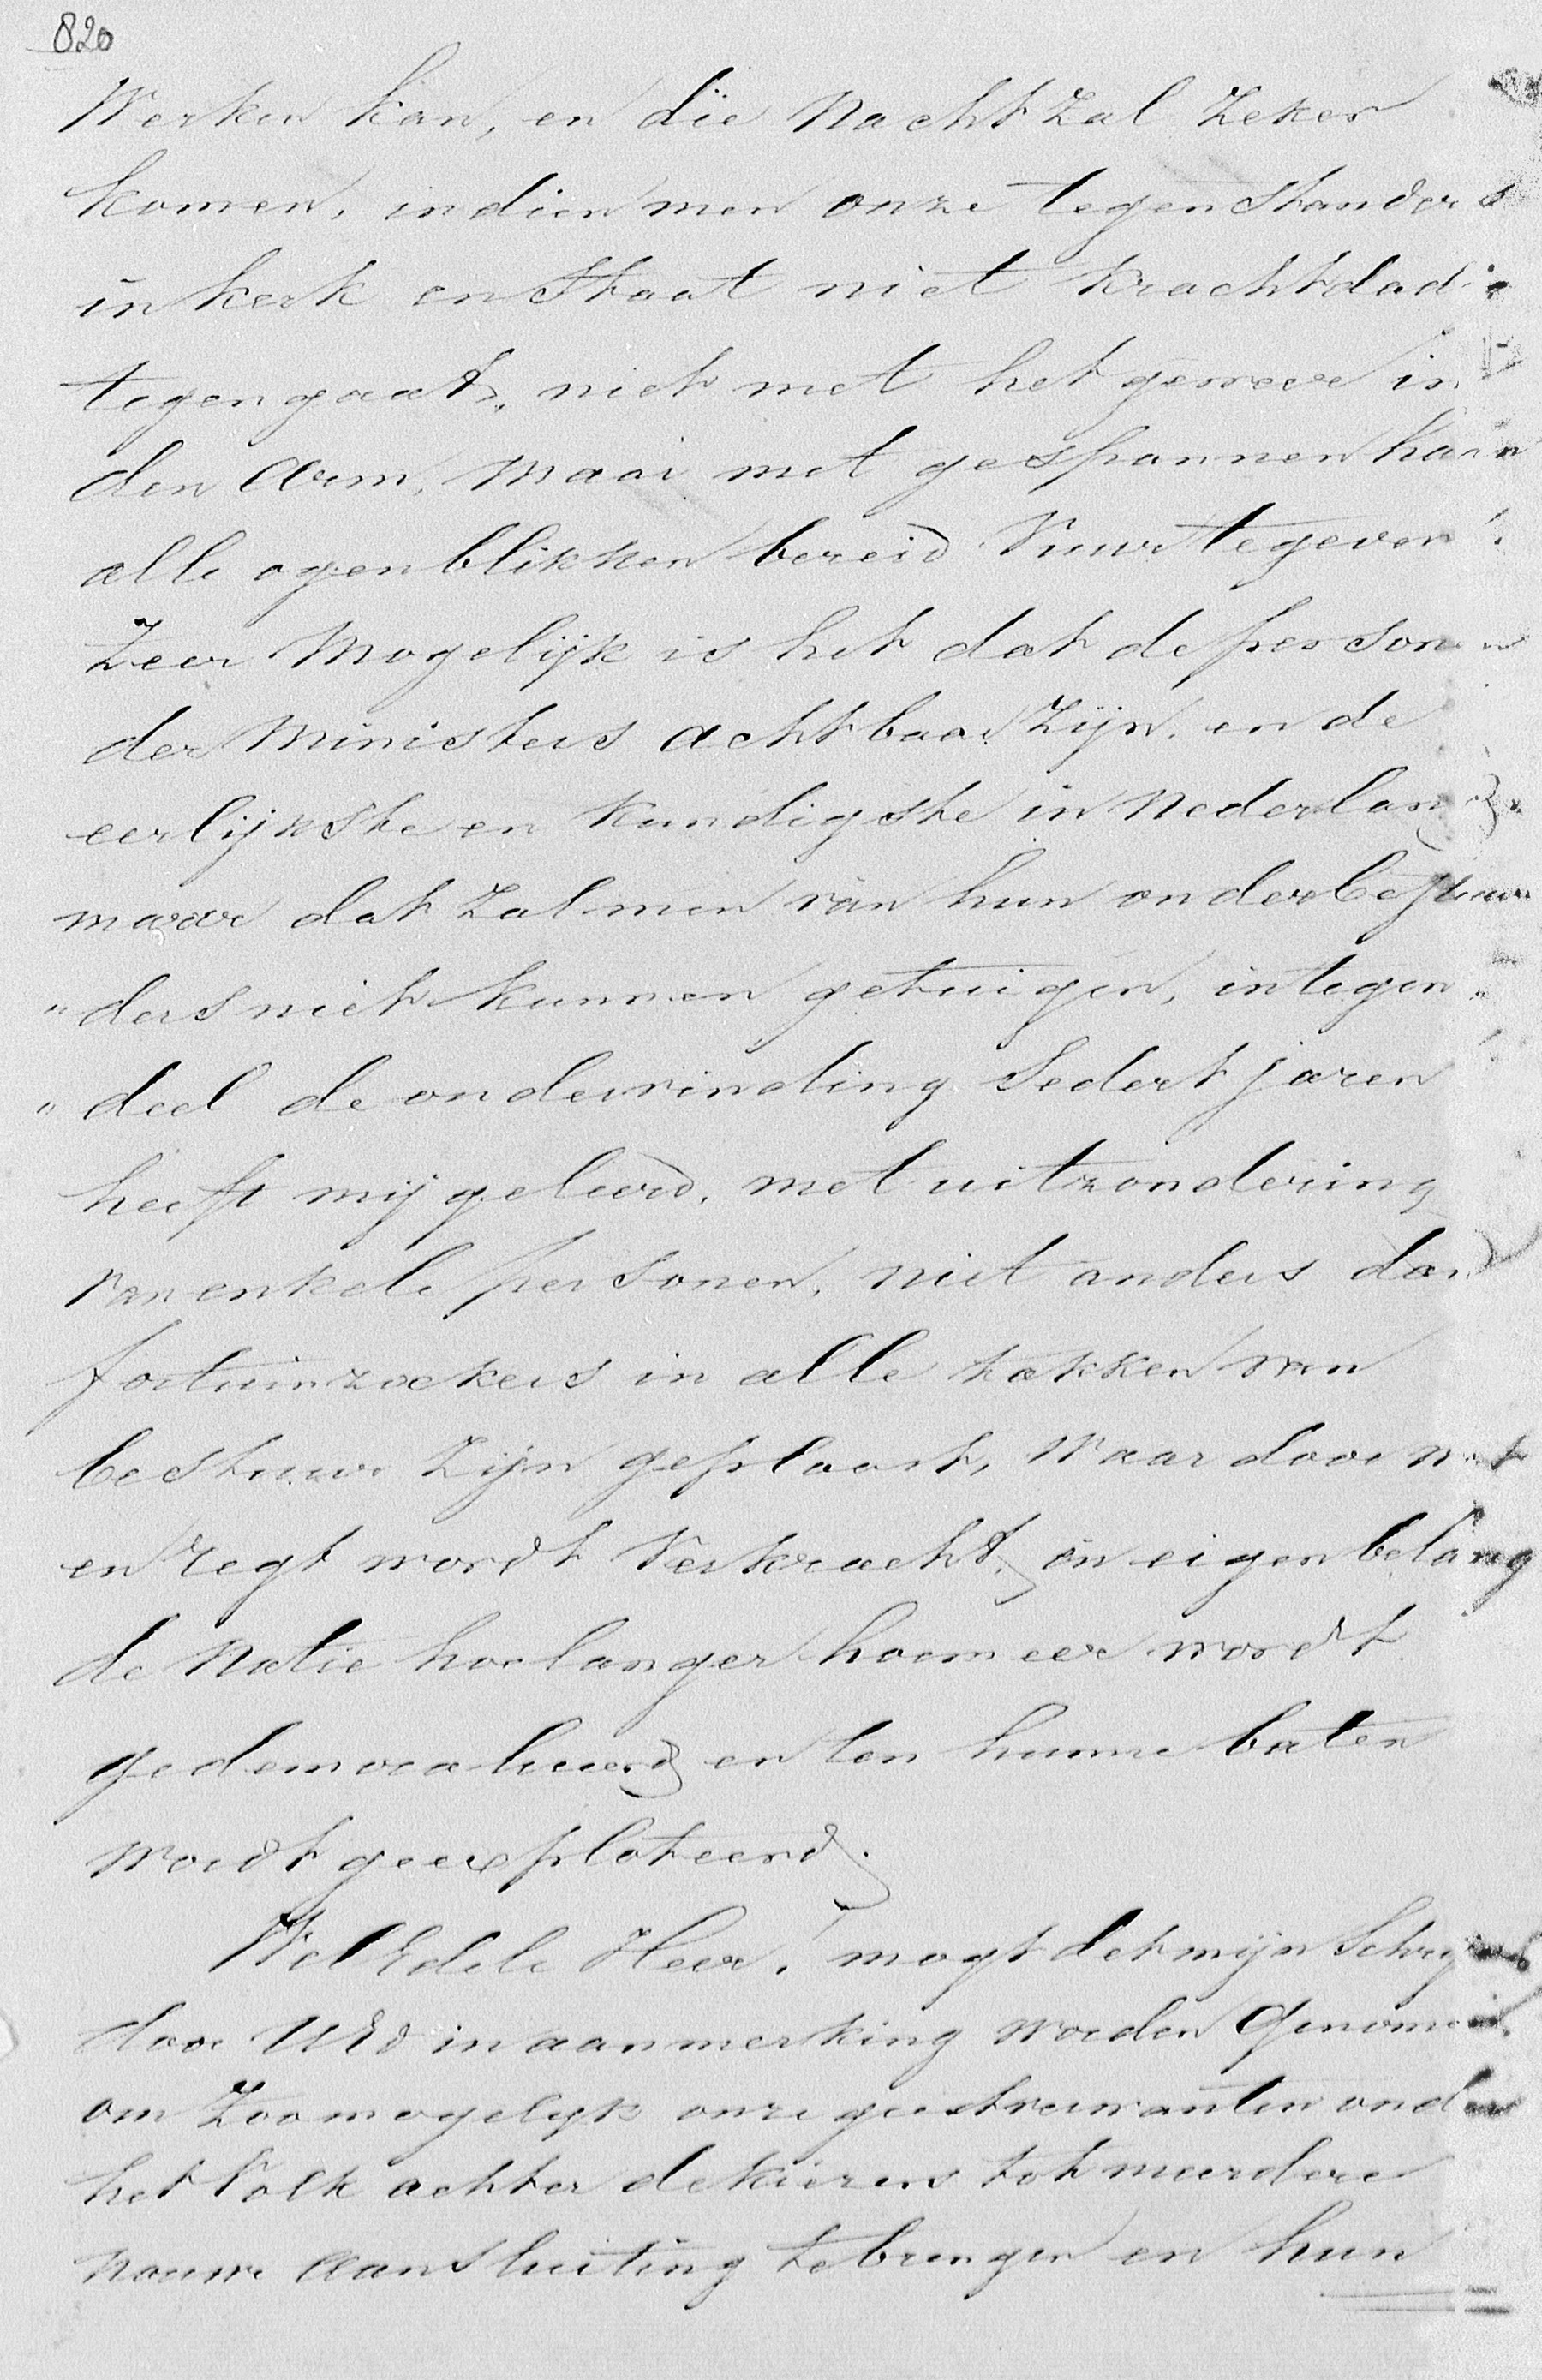 820
Werken kan, en die Nacht zal zeker
komen, indien men onze tegenstanders
in kerk en Staat niet krachtdadig
tegengaat, niet met het geweer in
den Arm, maar met gespannen haan
alle ogenblikken bereid Vuur tegeven!
Zeer Mogelijk is het dat de personen
der Ministers achtbaar zijn, en de
eerlijkste en kundigste in Nederland
maar dat zal men van hun onderbestuur
„ders niet kunnen getuigen, integen„
„deel de ondervinding sedert jaren
heeft mij geleerd, met uitzondering
van enkele personen, niet anders dan
fortuinzoekers in alle takken van
bestuur zijn geplaast, waardoor wet
en regt wordt Verkracht, en eigenbelang
de Natie hoe langer hoe meer wordt
gedemoraliseerd en ten hunne baten
wordt geexploteerd.
WelEdele Heer! mogt det mijn Schrijven
door UEd in aanmerking worden Genomen
om Zoomogelijk onze geestverwanten onder
het Volk achter de Kiezers tot meerdere
nouwe Aansluiting te brengen en hun